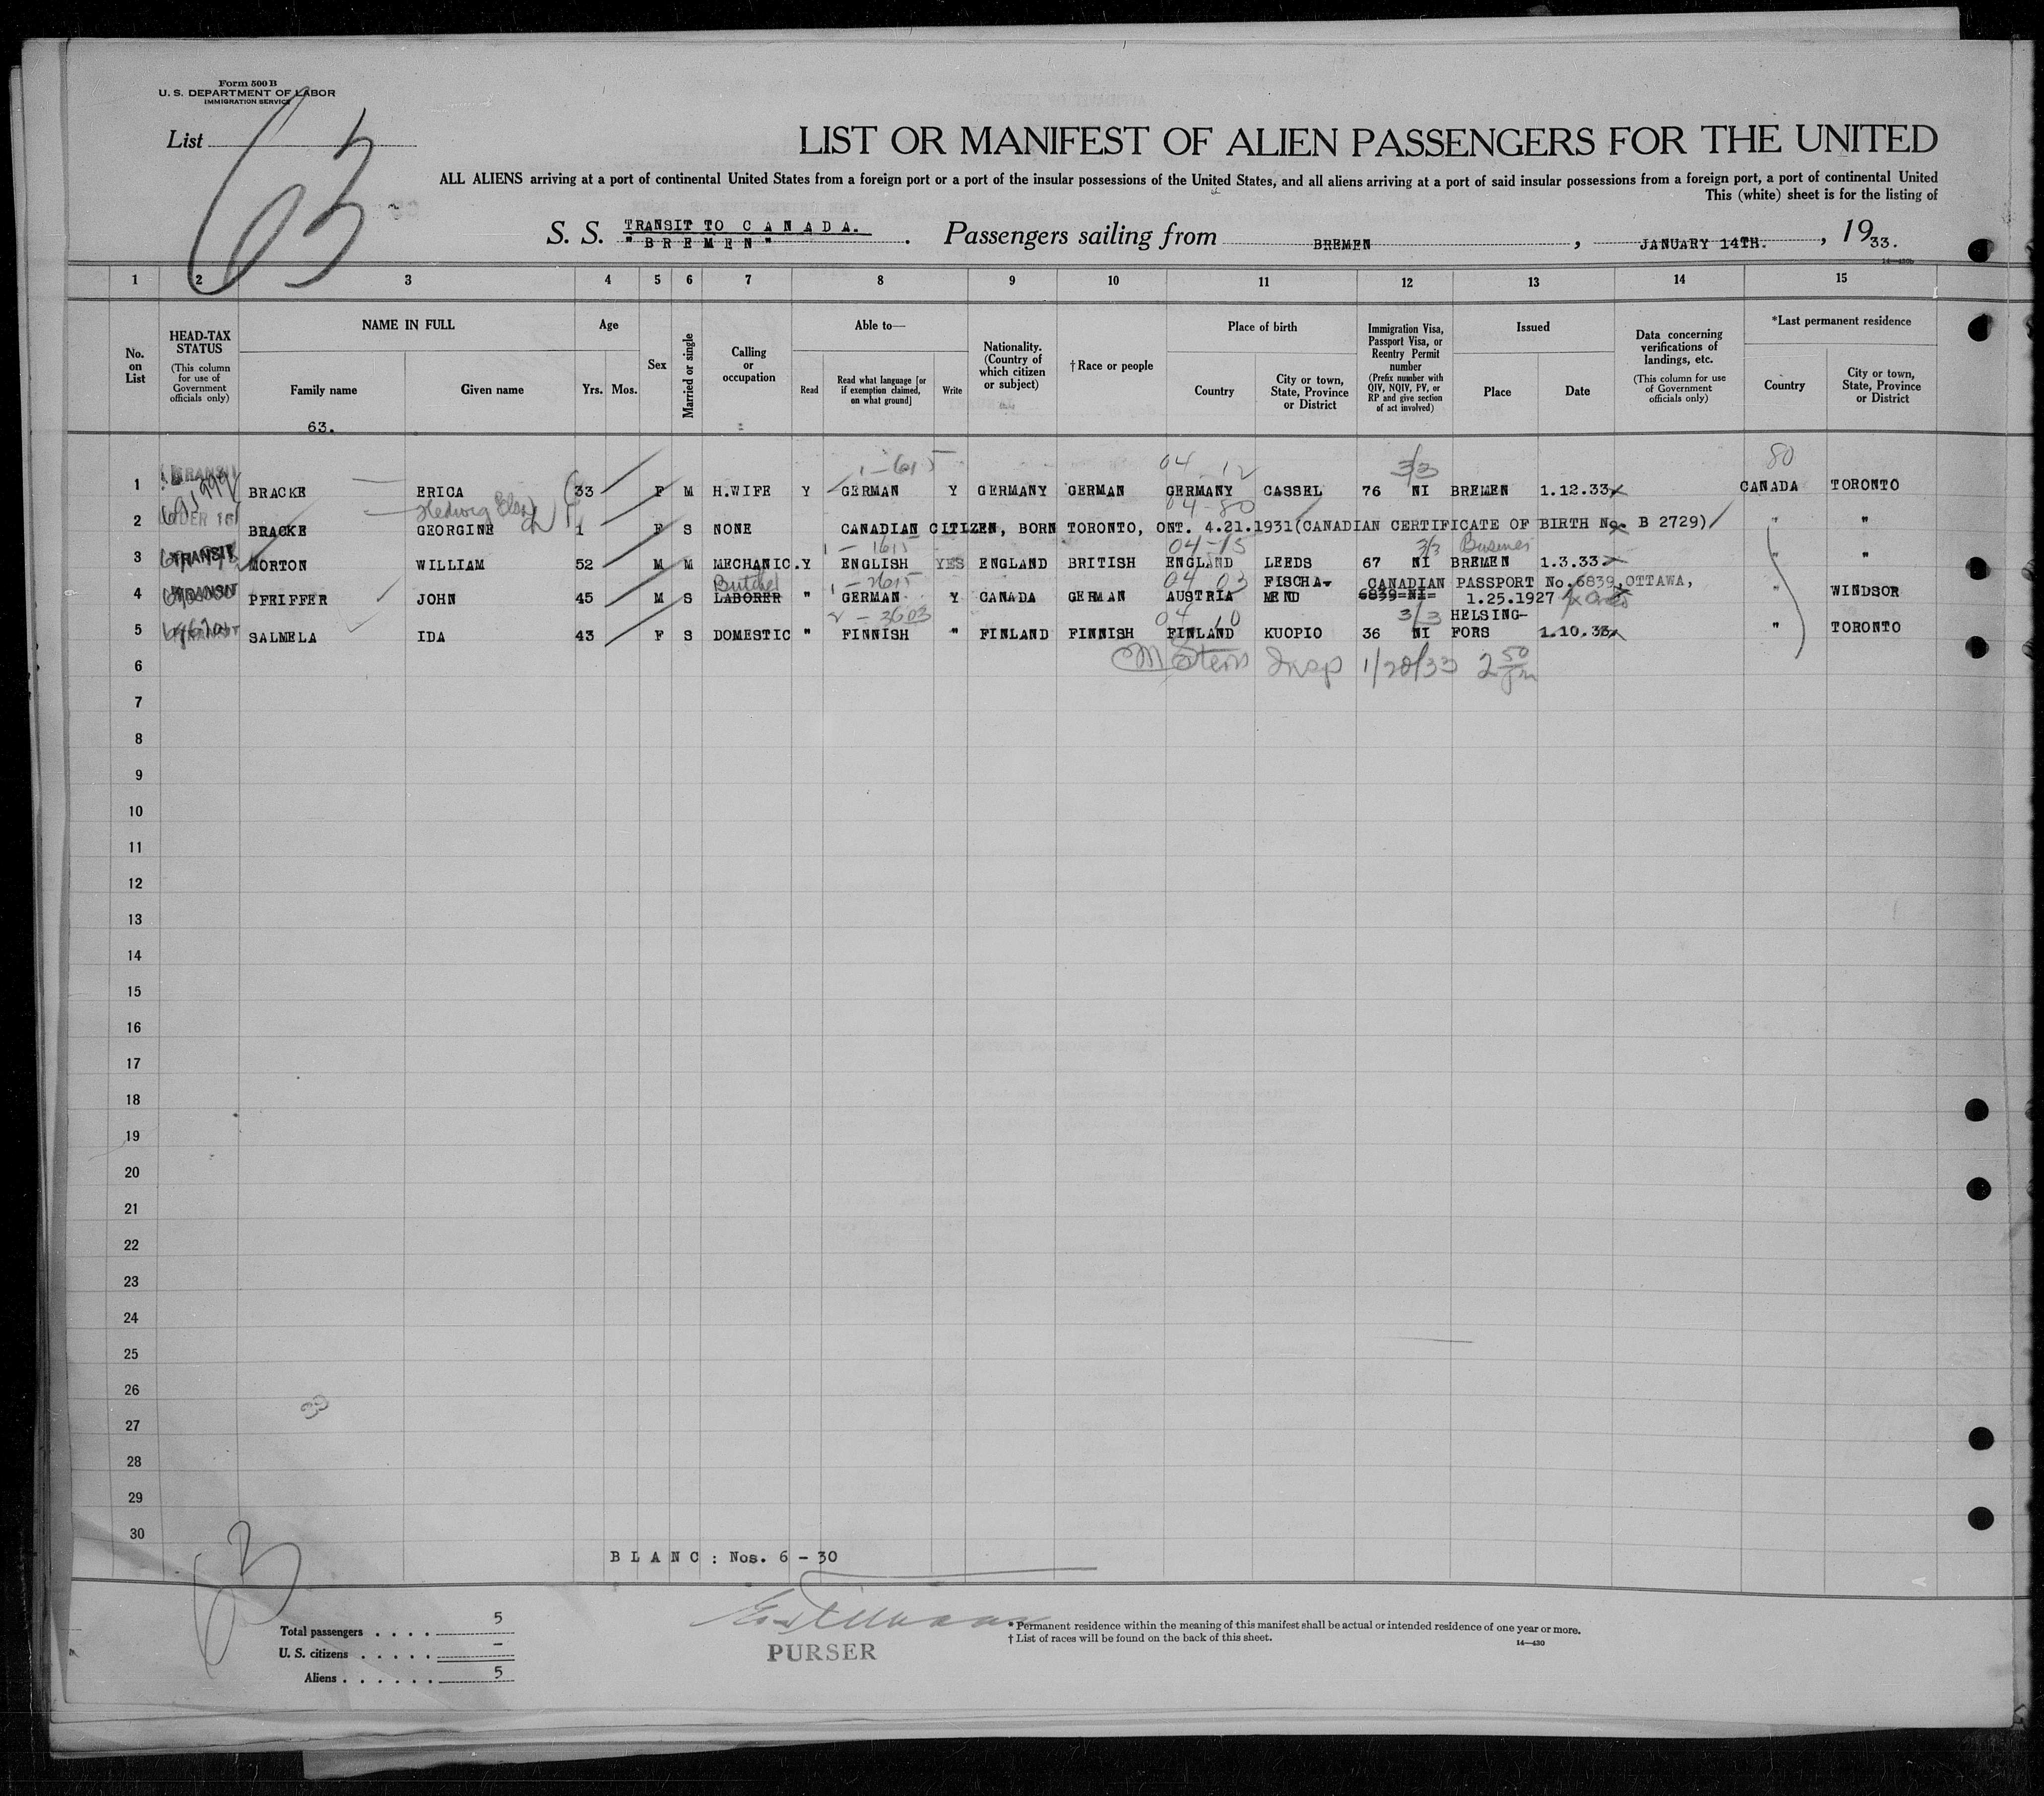 Form 500 B
U. S. DEPARTMENT OF LABOR
IMMIGRATION SERVICE
List 63
LIST OR MANIFEST OF ALIEN PASSENGERS FOR THE UNITED
ALL ALIENS arriving at a port of continental United States from a foreign port or a port of the insular possessions of the United States, and all aliens arriving at a port of said insular possessions from a foreign port, a port of continental United
This (white) sheet is for the listing of
TRANSIT TO CANADA.
S. S. "BREMEN". Passengers sailing from BREMEN, JANUARY 14TH., 1933.
1 2 3 4 5 6 7 8 9 10 11 12 13 14 15
No. on List
HEAD-TAX STATUS (This column for use of Government officials only)
NAME IN FULL
Family name
Given name
63.
Age
Yrs. Mos.
Sex
Married or single
Calling or occupation
Able to—
Read
Read what language [or if exemption claimed, on what ground]
Write
Nationality. (Country of which citizen or subject)
†Race or people
Place of birth
Country
City or town, State, Province or District
Immigration Visa, Passport Visa, or Reentry Permit number (Prefix number with QIV, NQIV, PV, or RP and give section of act involved)
Issued
Place
Date
Data concerning verifications of landings, etc. (This column for use of Government officials only)
*Last permanent residence
Country
City or town, State, Province or District
1-615 04 12 3/3 80
1 TRANSIT BRACKE ERICA 33 F M H.WIFE Y GERMAN Y GERMANY GERMAN GERMANY CASSEL 76 NI BREMEN 1.12.33 CANADA TORONTO
Hedwig 04-80
2 UNDER 16 BRACKE GEORGINE 1 F S NONE CANADIAN CITIZEN, BORN TORONTO, ONT. 4.21.1931(CANADIAN CERTIFICATE OF BIRTH No. B 2729) " "
1-1615 04-15 3/3 Busines
3 TRANSIT MORTON WILLIAM 52 M M MECHANIC. Y ENGLISH YES ENGLAND BRITISH ENGLAND LEEDS 67 NI BREMEN 1.3.33 " "
Butcher 1-2615 04 03 FISCHA- CANADIAN PASSPORT No.6839,OTTAWA,
4 TRANSIT PFEIFFER JOHN 45 M S LABORER " GERMAN Y CANADA GERMAN AUSTRIA MEND 6839=NI= 1.25.1927 " WINDSOR
2-3603 04 10 3/3 HELSING-
5 TRANSIT SALMELA IDA 43 F S DOMESTIC " FINNISH " FINLAND FINNISH FINLAND KUOPIO 36 NI FORS 1.10.33 " TORONTO
6 Insp 1/20/33 2 50 pm
7
8
9
10
11
12
13
14
15
16
17
18
19
20
21
22
23
24
25
26
27
28
29
30
BLANC: Nos. 6 - 30
63
PURSER
Total passengers . . . . 5
U. S. citizens . . . . . –
Aliens . . . . . . 5
* Permanent residence within the meaning of this manifest shall be actual or intended residence of one year or more.
† List of races will be found on the back of this sheet.
14—430